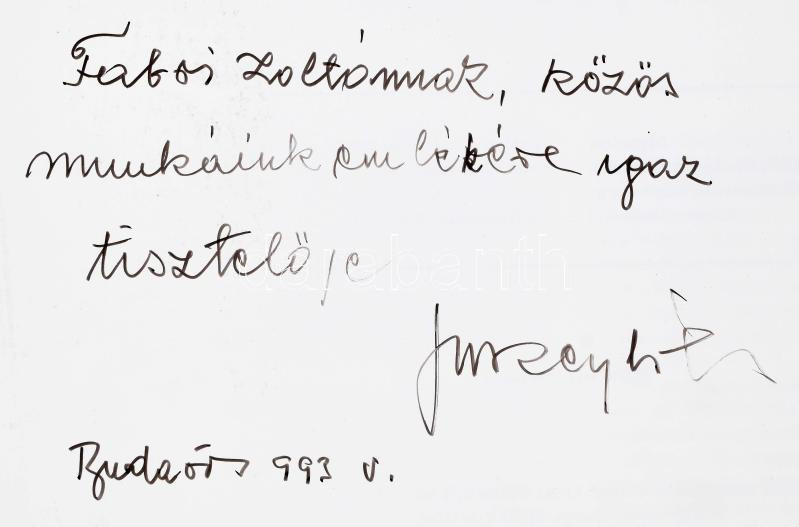 Fabri Zoltánnak, közös
munkáink emlékére igaz
tisztelője
darabanth
Budaörs 993 V.